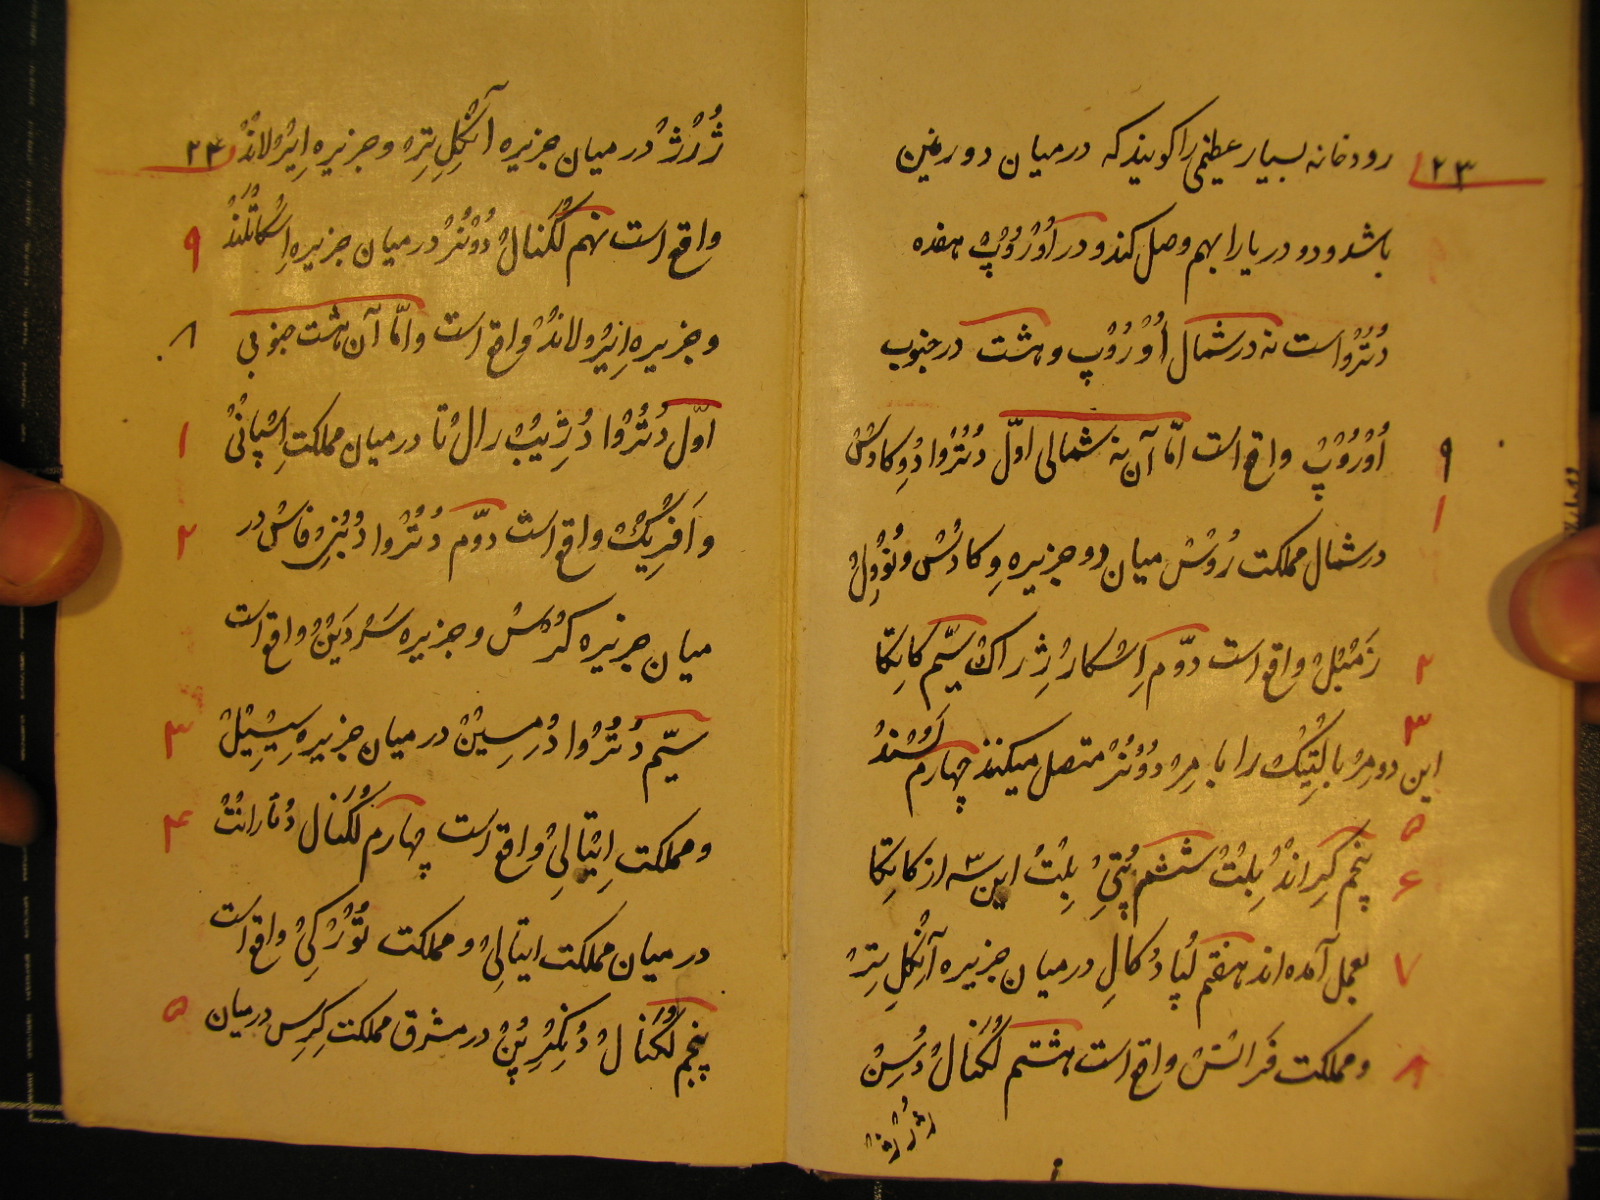 ۲۳
رودخانه بسیار عظیمی را کویند که درمیان دو رغین
باشد و دو دریا را بهم وصل کند و در اُوْرُوْپْ هفده
دُتْرْواست نه در شمال اُوْرُوْپ و هشت در جنوب
اُوْرُوْپْ واقع است امّا آن نه شمالی اوّل دُتْرْوا دُوِکادسْ
۹
۱
در شمال مملکت رُوسْ میان دو جزیره وِکادسْ و نُوْوِلْ
زَمْبْلْ واقع است دوّم اِسْکارْژِراکْ سیّم کاتِکا
۲
۳
این دو مِرْ بالْتِیْکْ را با مِرْ دُوْنُرْ متصل میکنند چهارم لَسُنْدْ
پنجم کِرانْدْ بِلْتْ ششم پُتِیْ بِلْتْ این سه از کاتِکا
۵
۶
بعمل آمده اند هفتم لُپادُکالِ درمیان جزیره آنْکِلْتِرْ
۷
و مملکت فَرانْسْ واقع است هشتم لُکَنالْ دُسِنْ
۸
ژُرْژْ
ژُرْژْ درمیان جزیره آنْکِلْتِرِهْ و جزیره اِیْرْلانْدْ
۲۳
واقع است نهم لُکَنالْ دُوْنُرْ درمیان جزیره اِسْکاتْلَنْدْ
۹
و جزیره اِیْرْولانْدْ واقع است و امّا آن هشت جنوبی
۸
اوّل دُتْرْوا دُژِیْبْ رالْ تا درمیان مملکتِ اِسْپانْیْ
۱
و اَفْرِیْکْ واقع است دوّم دُتْرْوا دُبُنِفاسْ در
۲
میان جزیره کُرْسْ و جزیره سَرْدَیْنْ واقع است
سیّم دُتْرْوا دُمِسِیْنْ درمیان جزیره سِیْسِیْلْ
۳
و مملکت اِیْتالِیْ واقع است چهارم لُکَنال دُتارانْتْ
۴
درمیان مملکت ایتالِیْ و مملکت تُوْرْکِیْ واقع است
پنجم لُکَنالْ دُنِکْرْپُنْ در مشرق مملکت کِرِس درمیان
۵